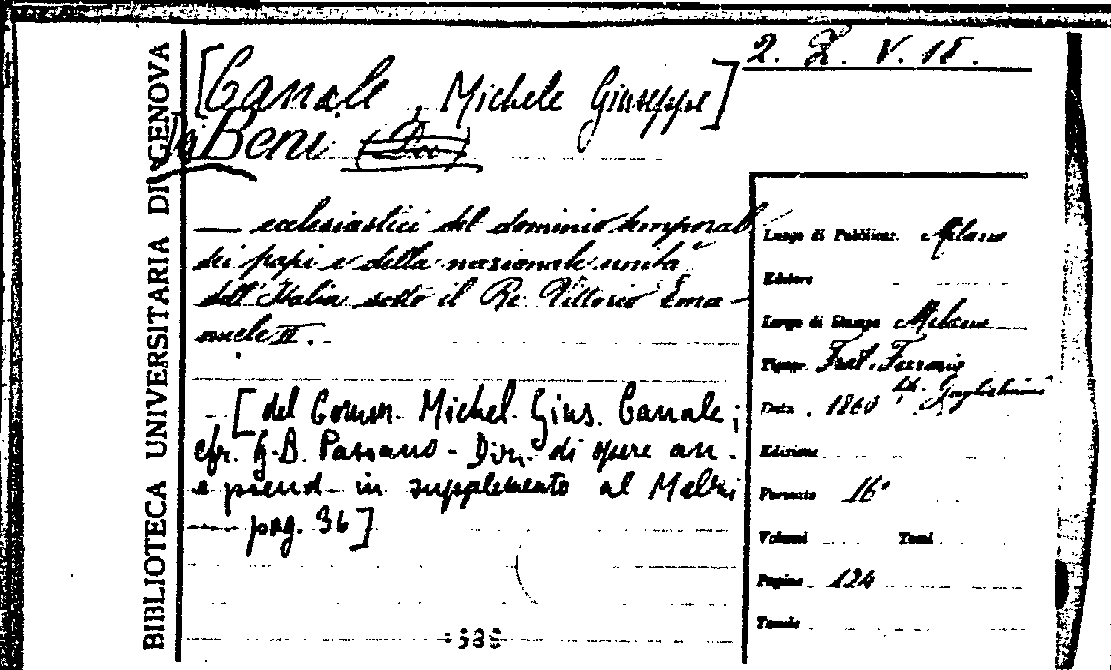 BIBLIOTECA UNIVERSITARIA DI GENOVA
2. Z. V. 18.
[Canale, Michele Giuseppe]
Beni
— ecclesiastici del dominio temporale
dei papi e della nazionale unità
dell'Italia sotto il Re Vittorio Ema-
nuele II.
[del Comm. Michel. Gius. Canale;
cfr. G.B. Passano - Diz. di opere an.
e pseud. in supplemento al Melzi
pag. 36]
Luogo di Pubblicaz. Milano
Editore
Luogo di Stampa Milano
Tipogr. Fort. Perrario
lib. Guglielmini
Data 1860
Edizione
Formato 16°
Volumi Tomi
Pagine 124
Tavole